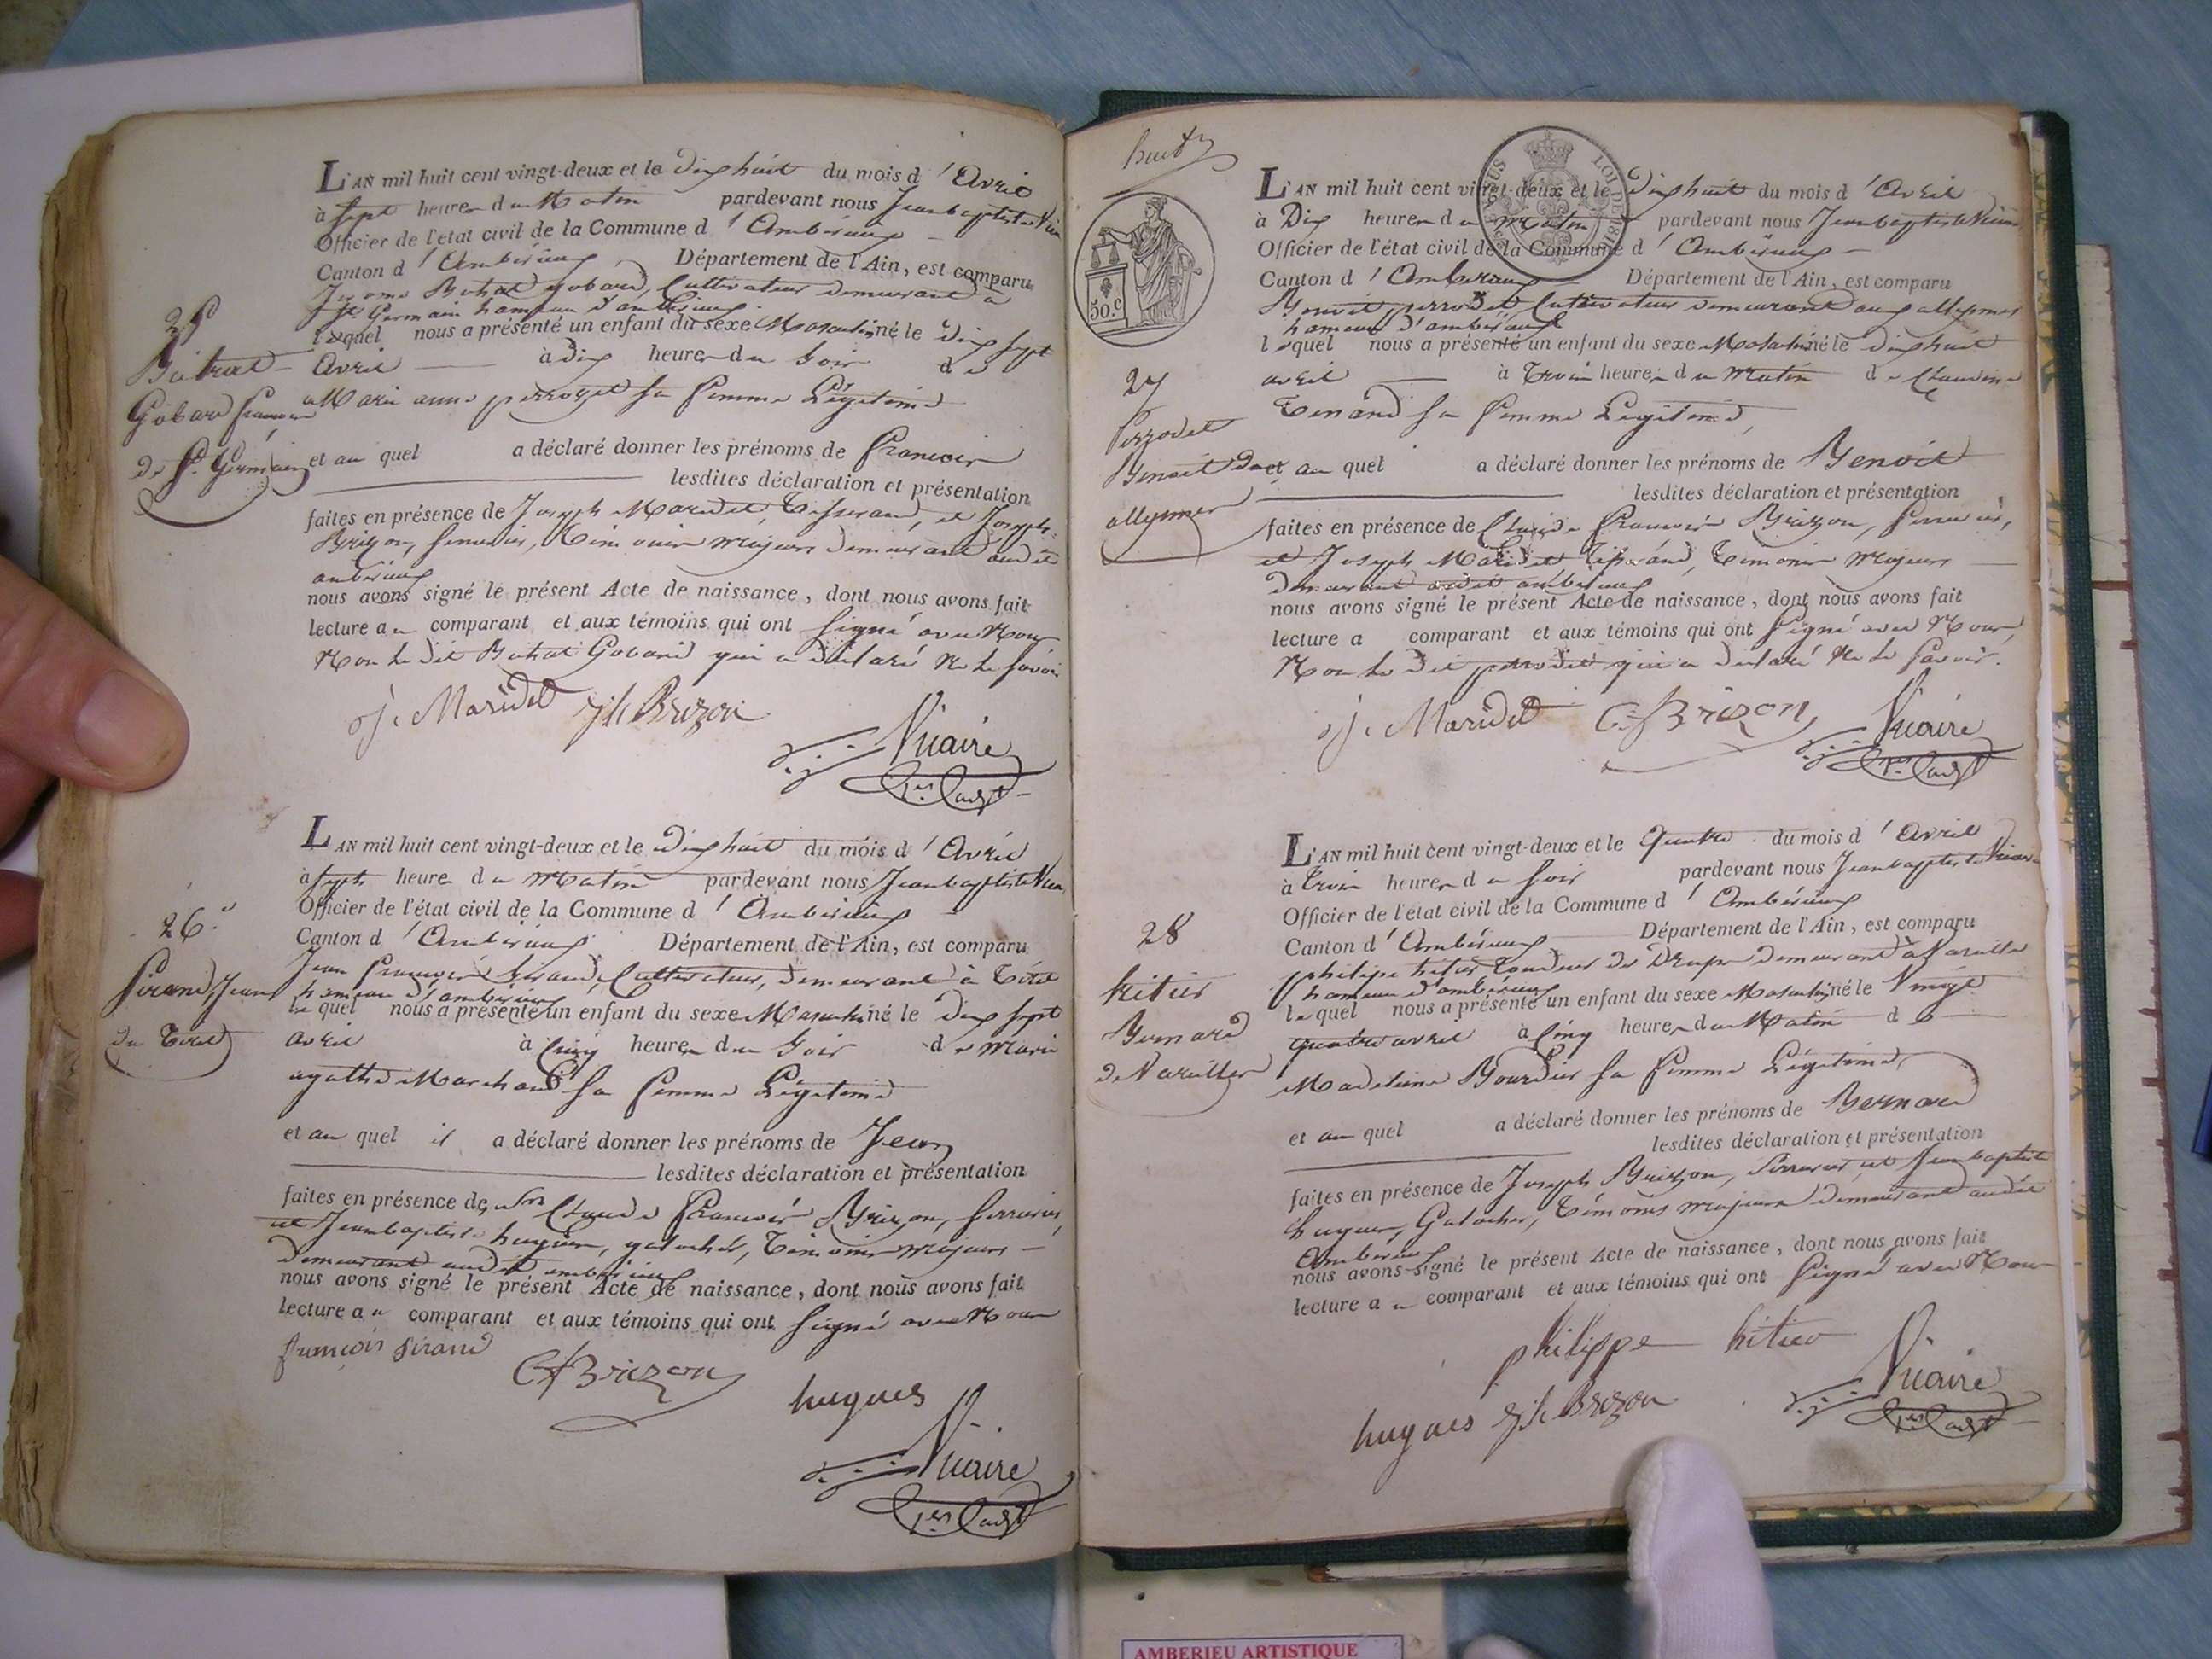 L'AN mil huit cent vingt-deux et le dix huit du mois d'Avril
à sept heures du Matin pardevant nous Jean baptiste Vicaire
Officier de l'état civil de la Commune d'Ambérieux
Canton d'Ambérieux Département de l'Ain, est comparu
Jerome Gobard, Cultivateur demeurant à
St Germain hameau d'ambérieux
lequel nous a présenté un enfant du sexe Masculin né le dix sept
25
Avril à dix heures du Soir de
Gobard François
Marie anne perrozet sa femme Légitime
de St Germain
et au quel a déclaré donner les prénoms de François
lesdites déclaration et présentation
faites en présence de Joseph Maridet, Tisserand, et Joseph
Brizon, serrurier, témoins majeurs demeurant audit
ambérieux
nous avons signé le présent Acte de naissance, dont nous avons fait
lecture au comparant et aux témoins qui ont signé avec Nous
Non le dit Gobard qui a déclaré ne le savoir
j. Maridet jh Brizon
Vicaire
L'AN mil huit cent vingt-deux et le dix huit du mois d'Avril
à sept heures du Matin pardevant nous Jean baptiste Vicaire
Officier de l'état civil de la Commune d'Ambérieux
26
Canton d'Ambérieux Département de l'Ain, est comparu
Jean François Sirand, Cultivateur, demeurant à Tiret
hameau d'ambérieux
Sirand, Jean
lequel nous a présenté un enfant du sexe Masculin né le dix sept
du Tiret
avril à cinq heures du Soir de marie
agathe Marchand sa femme Légitime
et au quel il a déclaré donner les prénoms de Jean
lesdites déclaration et présentation
faites en présence de Claude François Brizon, serrurier,
et Jean baptiste hugues, galocher, témoins majeurs
demeurant audit ambérieux
nous avons signé le présent Acte de naissance, dont nous avons fait
lecture au comparant et aux témoins qui ont signé avec Nous
françois sirand
CF Brizon
hugues
Vicaire
50.c
LOI DE 1816
L'AN mil huit cent vingt-deux et le dix huit du mois d'Avril
à Dix heures du Matin pardevant nous Jean baptiste Vicaire
Officier de l'état civil de la Commune d'Ambérieux
Canton d'Ambérieux Département de l'Ain, est comparu
Benoit perrodet, Cultivateur demeurant aux allymes
hameau d'ambérieux
lequel nous a présenté un enfant du sexe Masculin né le dix huit
27
avril à trois heures du matin de Claudine
Tenand sa femme Légitime,
Perrodet
Benoit des
allymes
et au quel a déclaré donner les prénoms de Benoit
lesdites déclaration et présentation
faites en présence de Claude François Brizon, serrurier,
et Joseph Maridet tisserand, témoins majeurs
demeurant audit ambérieux
nous avons signé le présent Acte de naissance, dont nous avons fait
lecture a comparant et aux témoins qui ont signé avec Nous,
Non le dit perrodet qui a déclaré ne le savoir.
j. Maridet C.f Brizon
Vicaire
L'AN mil huit cent vingt-deux et le quatre du mois d'Avril
à trois heures du soir pardevant nous Jean baptiste Vicaire
Officier de l'état civil de la Commune d'Ambérieux
28
Canton d'Ambérieux Département de l'Ain, est comparu
philipe hitier tondeur de Draps demeurant à Vareilles
hameau d'ambérieux
hitier
Bernard
de Vareilles
lequel nous a présenté un enfant du sexe Masculin né le Vingt
quatre avril à cinq heures du Matin de
Madelaine Bourdin sa femme Légitime,
et au quel a déclaré donner les prénoms de Bernard
lesdites déclaration et présentation
faites en présence de Joseph Brizon, serrurier et Jean baptiste
hugues, Galocher, témoins majeurs demeurant audit
Ambérieux
nous avons signé le présent Acte de naissance, dont nous avons fait
lecture au comparant et aux témoins qui ont signé avec Nous
philippe hitier
hugues jh Brizon
Vicaire
AMBERIEU ARTISTIQUE